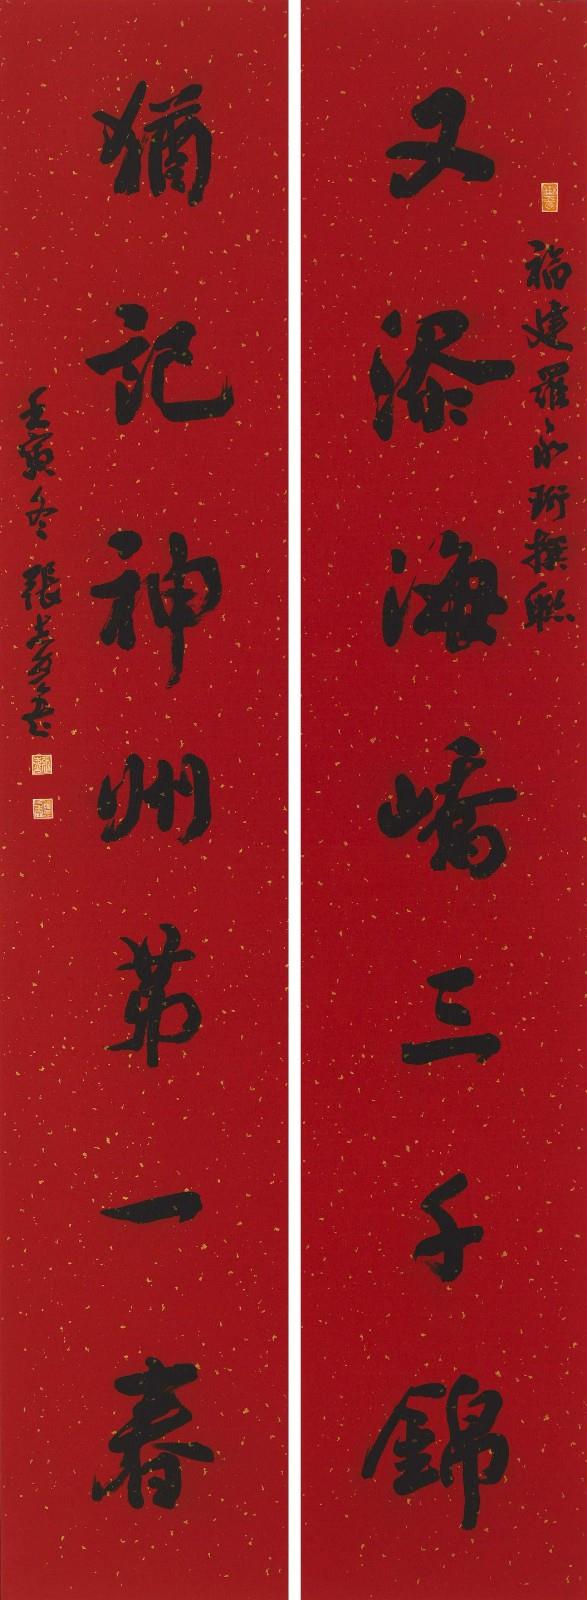 又添海峤三千錦
福建羅永珩撰聯
猶記神州第一春
壬寅冬 張志安書